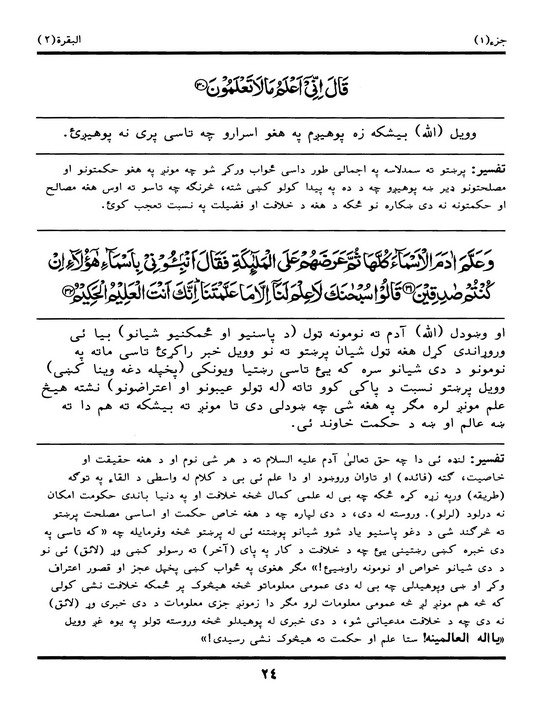 جزء(۱)
البقرة(۲)
قَالَ اِنِّیْٓ اَعْلَمُ مَا لَا تَعْلَمُوْنَ ﴿۳۰﴾
وويل (الله) بيشکه زه پوهيږم په هغو اسرارو چه تاسی پری نه پوهيږئ.
تفسیر: پرښتو ته سمدلاسه په اجمالی طور داسی ځواب ورکړ شو چه مونږ په هغو حکمتونو او
مصلحتونو ډير ښه پوهيږو چه د ده په پيدا کولو کښی شته، څرنګه چه تاسو ته اوس هغه مصالح
او حکمتونه نه دی ښکاره نو ځکه د هغه د خلافت او فضيلت په نسبت تعجب کوئ.
وَعَلَّمَ اٰدَمَ الْاَسْمَآءَ كُلَّهَا ثُمَّ عَرَضَهُمْ عَلَى الْمَلٰٓئِكَةِ فَقَالَ اَنْۢبِـُٔوْنِیْ بِاَسْمَآءِ هٰٓؤُلَآءِ اِنْ
كُنْتُمْ صٰدِقِيْنَ ﴿۳۱﴾ قَالُوْا سُبْحٰنَكَ لَا عِلْمَ لَنَآ اِلَّا مَا عَلَّمْتَنَا اِنَّكَ اَنْتَ الْعَلِيْمُ الْحَكِيْمُ ﴿۳۲﴾
او وښودل (الله) آدم ته نومونه ټول (د پاسنيو او ځمکنيو شيانو) بيا ئی
وروړاندی کړل هغه ټول شيان پرښتو ته نو وويل خبر راکړئ تاسی ماته په
نومونو د دی شيانو سره که يئ تاسی رښتيا ويونکی (پخپله دغه وينا کښی)
وويل پرښتو نسبت د پاکی کوو تاته (له ټولو عيبونو او اعتراضونو) نشته هيڅ
علم مونږ لره مګر په هغه شی چه ښودلی دی تا مونږ ته بيشکه ته هم دا ته
ښه عالم او ښه د حکمت خاوند ئی.
تفسیر: لنډه ئی دا چه حق تعالیٰ آدم عليه السلام ته د هر شی نوم او د هغه حقيقت او
خاصيت، ګټه (فائده) او تاوان وروښود او دا علم ئی بی د کلام له واسطی د القاء په توګه
(طريقه) ورپه زړه کړه ځکه چه بی له علمی کمال څخه خلافت او په دنيا باندی حکومت امکان
نه درلود (لرلو). وروسته له دی، د دی لپاره چه د هغه خاص حکمت او اساسی مصلحت پرښتو
ته څرګند شی د دغو پاسنيو ياد شوو شيانو پوښتنه ئی له پرښتو څخه وفرمايله چه «که تاسی په
دی خبره کښی رښتينی يئ چه د خلافت د کار په پای (آخر) ته رسولو کښی وړ (لائق) ئی نو
د دی شيانو خواص او نومونه راوښيئ!» مګر هغوی په ځواب کښی پخپل عجز او قصور اعتراف
وکړ او ښی وپوهيدلی چه بی له دی عمومی معلوماتو څخه هيڅوک پر ځمکه خلافت نشی کولی
که څه هم مونږ لږ څه عمومی معلومات لرو مګر دا زمونږ جزی معلومات د دی خبری وړ (لائق)
نه دی چه د خلافت مدعيانی شو، د دی خبری له پوهيدلو څخه وروسته ټولو په يوه غږ وويل
«يااله العالمينه! ستا علم او حکمت ته هيڅوک نشی رسيدی!»
٢٤